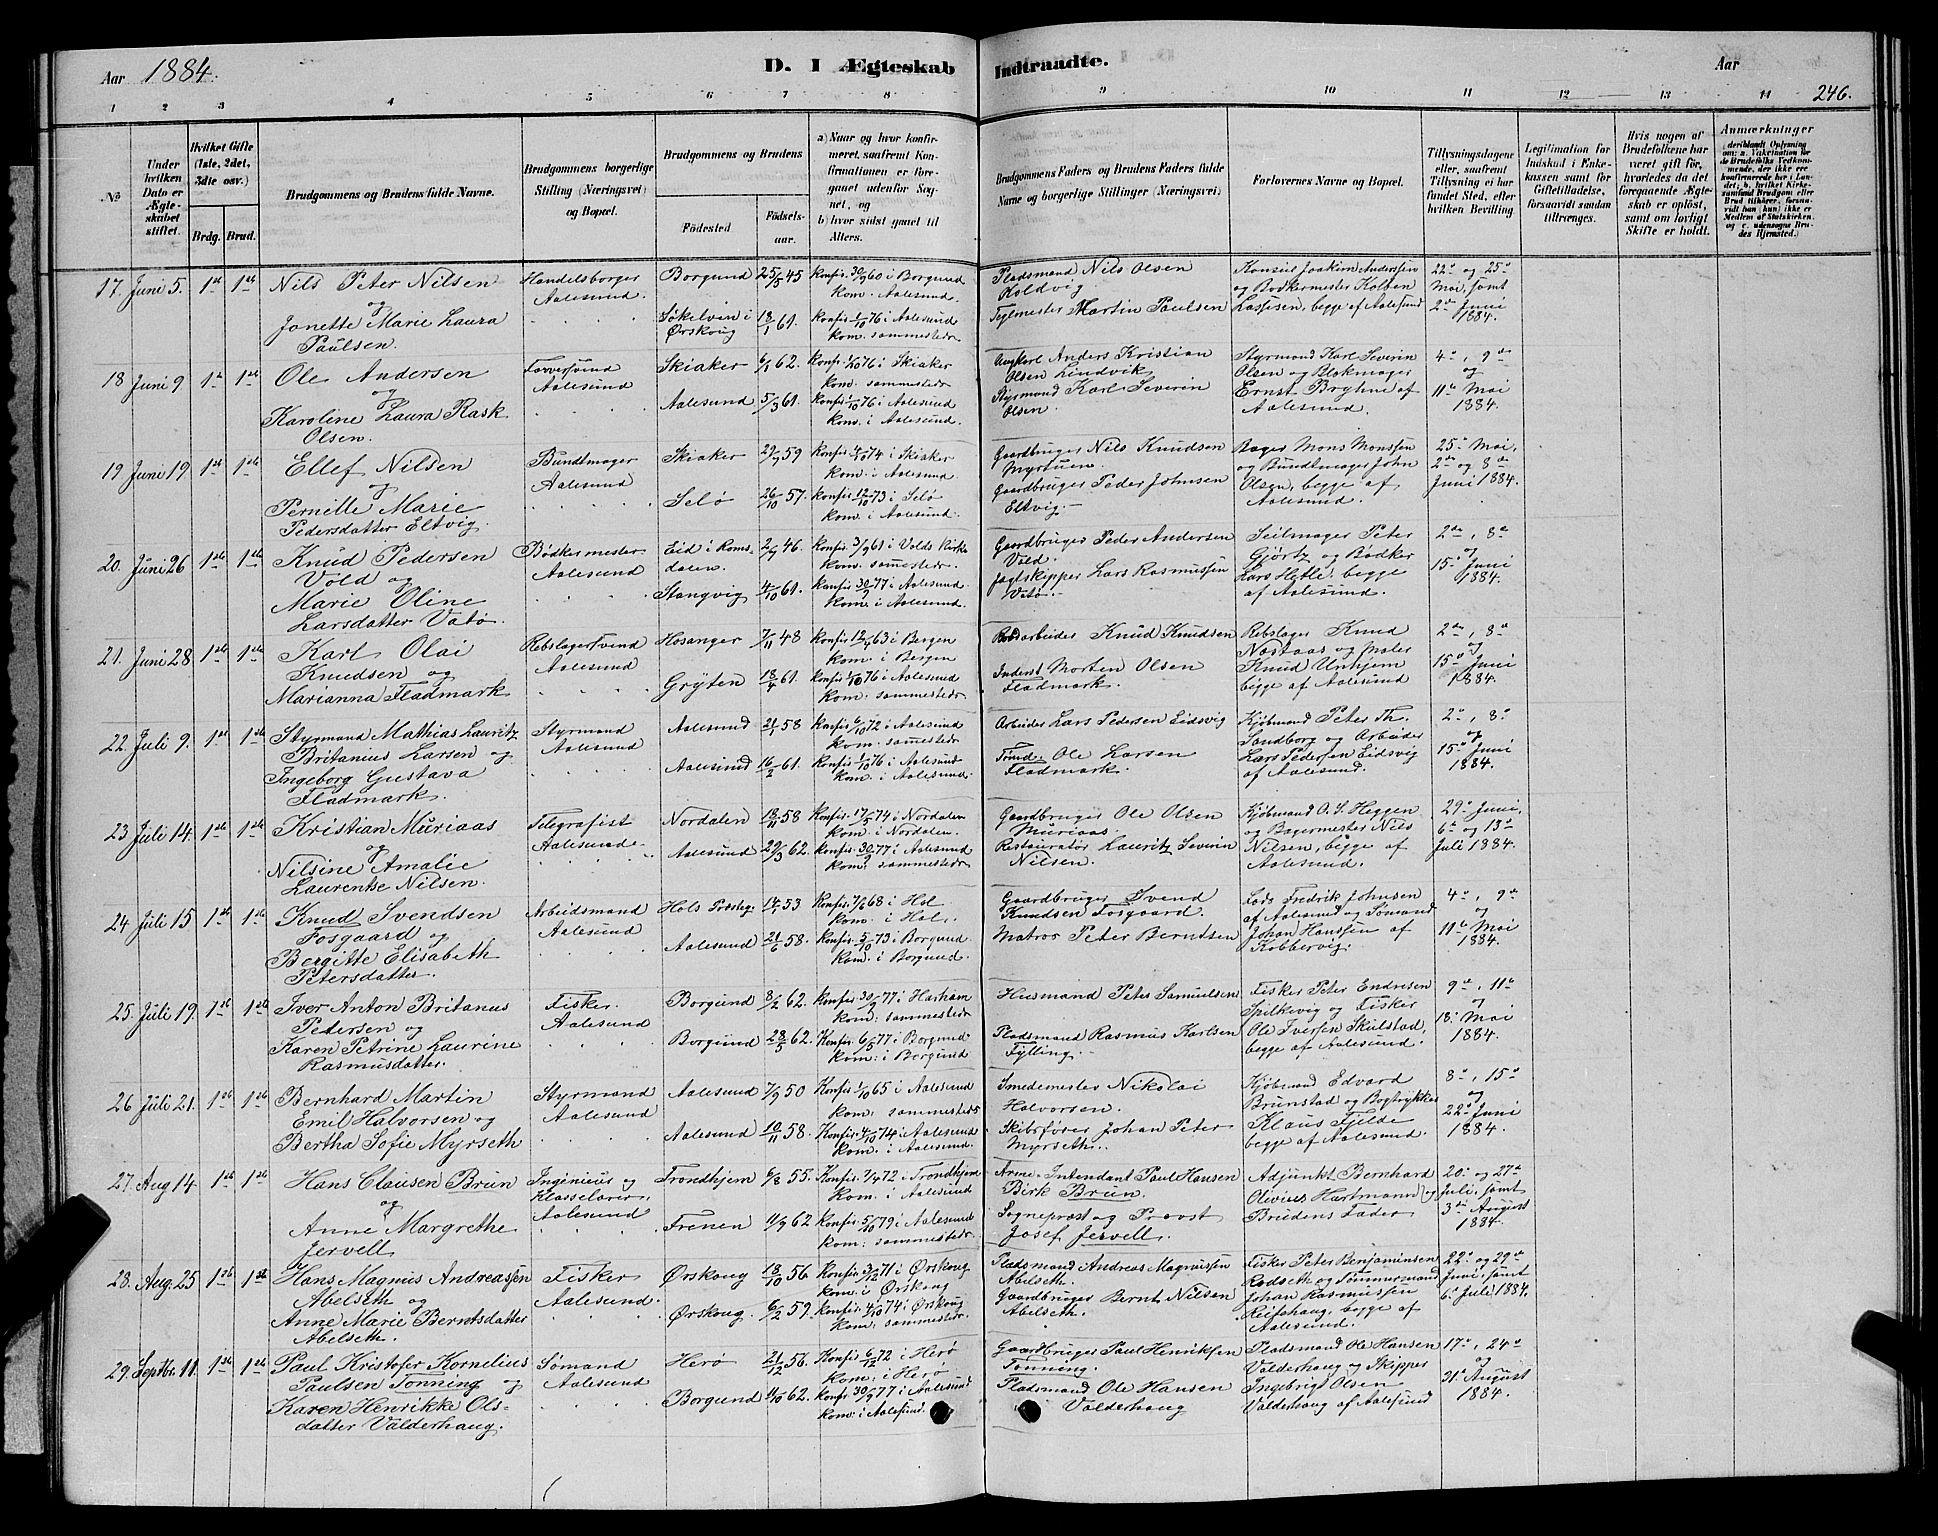 Aar 1884.
D. I Ægteskab Indtraadte.
Aar
246.
1 2 3 4 5 6 7 8 9 10 11 12 13 14
No
Under hvilken Dato er Ægteskabet stiftet.
Hvilket Gifte (1ste, 2det, 3die osv.)
Brdg. Brud.
Brudgommens og Brudens fulde Navne.
Brudgommens borgerlige Stilling (Næringsvei) og Bopæl.
Brudgommens og Brudens
Födested
Födselsaar.
a) Naar og hvor konfirmeret, saafremt Konfirmationen er foregaaet udenfor Sognet, og
b) hvor sidst gaaet til Alters.
Brudgommens Faders og Brudens Faders fulde Navne og borgerlige Stillinger (Næringsvei)
Forlovernes Navne og Bopæl.
Tillysningsdagene eller, saafremt Tillysning ei har fundet Sted, efter hvilken Bevilling.
Legitimation for Indskud i Enkekassen samt for Giftetilladelse, forsaavidt saadan tiltrænges.
Hvis nogen af Brudefolkene har været gift før, hvorledes da det foregaaende Ægteskab er opløst, samt om lovligt Skifte er holdt.
Anmærkninger
17. Juni 5. 1ste 1ste Nils Peter Nilsen
og
Jonette Marie Laura
Paulsen.
Handelsborger
Aalesund
Borgund 25/5 45
Søkelven i
Ørskoug 18/1 61.
Konfir. 30/9 60 i Borgund
Kom. i Aalesund.
Konfir. 1/10 76 i Aalesund
kom. sammestedr
Pladsmand Nils Olsen
Koldvig
Teglmester Martin Paulsen
Konsul Joakim Anderssen
og Bødkermester Kolben
Lassesen, begge af Aalesund
22de og 25de
Mai, samt
2den Juni
1884.
18 Juni 9 1ste 1ste Ole Andersen
og
Karoline Laura Rask
Olsen.
Farversvend
Aalesund
Skiaker 6/1 62.
Aalesund 5/3 61.
Konfir. 1/10 76 i Skiaker
kom. sammestedr
Konfir. 1/10 76 i Aalesund
kom. i Aalesund.
Ungkarl Anders Kristian
Olsen Lindvik
Styrmand Karl Severin
Olsen.
Styrmand Karl Severin
Olsen og Blokmager
Ernst Bryhne af
Aalesund.
4de, 9de
og
11te Mai
1884.
19 Juni 19 1ste 1ste Ellef Nilsen
og
Pernille Marie
Pedersdatter Eltvig.
Bundtmager
Aalesund
Skiaker 29/7 59
Selø 26/10 57.
Kom. i Aalesund
Konfir. 12/10 73 i Selø
kom. i Aalesund.
Gaardbruger Nils Knudsen
Myrtuen.
Gaardbruger Peder Johnsen
Eltvig.
Bager Mons Monssen
og Bundtmager John
Olsen, begge af
Aalesund.
25de Mai,
2den og 8de
Juni 1884.
20. Juni 26 1ste 1ste Knud Pedersen
Vold og
Marie Oline
Larsdatter Vatø.
Bødkermester
Aalesund
Eid i Romsdalen. 2/9 46.
Stangvig 4/10 61.
Konfir. 3/9 61 i Volds Kirke
kom. sammestedr.
Konfir. 30/9 77 i Aalesund.
Kom. i Aalesund.
Gaardbruger Peder Andersen
Vold.
Jagtskipper Lars Rasmussen
Vatø.
Seilmager Peter
Gjørtz og Bødker
Lars Hetle, begge
af Aalesund.
2den, 8de
og
15de Juni
1884.
21. Juni 28 1ste 1ste Karl Olai
Knudsen og
Marianna Fladmark
Rebslagersvend
Aalesund
Hosanger 7/11 48
Gryten 18/4 61.
Konfir. 12/4 63 i Bergen
Kom. i Bergen
Konfir. 1/10 76 i Aalesund
kom. sammestedr
Knud Knudsen
Inderst Morten Olsen
Fladmark.
Rebslager Knud
Næstaas og Maler
Knud Unhjem
begge af Aalesund
2den, 8de
og
15de Juni
1884.
22. Juli 9. 1ste 1ste Styrmand Mathias Lauritz
Britanius Larsen og
Ingeborg Gustava
Fladmark.
Styrmand
Aalesund
Aalesund 21/1 58
Aalesund 16/2 61.
Konfir. 6/10 72 i Aalesund
kom. sammestedr
Konfir. 1/10 76 i Aalesund
kom. i Aalesund.
Arbeider Lars Pedersen Eidsvig
Ole Larsen
Fladmark.
Kjøbmand Peter Th.
Sandborg og Arbeider
Lars Pedersen Eidsvig
af Aalesund.
2den, 8de
og
15de Juni
1884.
23 Juli 14. 1ste 1ste Kristian Muriaas
og
Nilsine Amalie
Laurentse Nilsen.
Telegrafist
Aalesund.
Nordalen 18/11 58
Aalesund 29/3 62.
Konfir. 17/5 74 i Nordalen
kom. i Nordalen.
Konfir. 30/9 77 i Aalesund
kom. sammestedr
Gaardbruger Ole Olsen
Muriaas.
Restauratør Lauritz Severin
Nilsen.
Kjøbmand O. S. Heggen
og Bagermester Nils
Nilsen, begge af
Aalesund.
29de Juni,
6te og 13de
Juli 1884.
24. Juli 15. 1ste 1ste Knud Svendsen
Fosgaard og
Bergitte Elisabeth
Petersdatter.
Arbeidsmand
Aalesund
Hols Præsteg. 14/1 53
Aalesund 21/6 58.
Konfir. 7/6 68 i Hol
kom. i Hol.
Konfir. 5/10 73 i Borgund
Kom. i Borgund.
Gaardbruger Svend
Knudsen Fosgaard.
Matros Peter Berntsen
Lods Fredrik Johnsen
af Aalesund og Sømand
Johan Hanssen af
Kobbervig.
4de, 9de
og
11te Mai
1884.
25. Juli 19. 1ste 1ste Iver Anton Britanus
Pedersen og
Karen Petrine Laurine
Rasmusdatter.
Fisker
Aalesund
Borgund 8/2 62.
Borgund 28/5 62.
Konfir. 30/9 77 i Harham
kom. sammestedr
Konfir. 6/5 77 i Borgund
kom. i Borgund
Husmand Peter Samuelsen
Pladsmand Rasmus Karlsen
Fylling.
Fisker Peter Endresen
Spilkevig og Fisker
Ole Iversen Skulstad,
begge af Aalesund.
9de, 11te
og
18de Mai
1884.
26 Juli 21. 1ste 1ste Bernhard Martin
Emil Halvorsen og
Bertha Sofie Myrseth
Styrmand
Aalesund
Aalesund 7/9 50
Aalesund 10/11 58.
Konfir. 1/10 65 i Aalesund
kom. sammestedr
Konfir. 4/10 74 i Aalesund
kom. i Aalesund.
Smedemester Nikolai
Halvorsen.
Skibsfører Johan Peter
Myrseth.
Kjøbmand Edvard
Brunstad og Bogtrykker
Klaus Fjelde
begge af Aalesund.
8de, 15de
og
22de Juni
1884.
27. Aug 14. 1ste 1ste Hans Clausen Brun
og
Anne Margrethe
Jervell
Ingeniør og
Klasselærer,
Aalesund
Trondhjem 6/8 55.
Frenen 11/9 62
Konfir. 7/4 72 i Trondhjem
kom. i Aalesund
Konfir. 5/10 79 i Aalesund
kom. sammestedr
Arme-Intendant Paul Hansen
Birk Brun.
Sognepræst og Provst
Josef Jervell.
Adjunkt Bernhard
Olivius Hartmann og
Brudens Fader
20de og 27de
Juli, samt
3die August
1884.
28. Aug. 25 1ste 1ste Hans Magnus Andreassen
Abelseth og
Anne Marie Berntsdatter
Abelseth.
Fisker
Aalesund.
Ørskoug 18/10 56
Ørskoug 6/2 59.
Konfir. 3/12 71 i Ørskoug
kom. i Ørskoug
Konfir. 4/10 74 i Ørskoug
kom. sammestedr.
Pladsmand Andreas Magnussen
Abelseth.
Gaardbruger Bernt Nilsen
Abelseth.
Fisker Peter Benjaminsen
Rødseth og Tømmermand
Johan Rasmussen
Reitehaug, begge af
Aalesund.
22de og 29de
Juni, samt
6te Juli 1884.
29. Septbr. 11. 1ste 1ste Paul Kristofer Kornelius
Paulsen Tonning og
Karen Henrikke Olsdatter
Valderhaug.
Sømand
Aalesund
Herø 21/12 56.
Borgund 11/10 62.
Konfir. 6/12 72 i Herø
kom. i Herø
Konfir. 30/9 77 i Aalesund
kom. i Aalesund.
Gaardbruger Paul Henriksen
Tonning.
Pladsmand Ole Hansen
Valderhaug
Pladsmand Ole Hansen
Valderhaug og Skipper
Ingebrigt Olsen
Valderhaug af Aalesund
17de, 24de
og
21de August
1884.